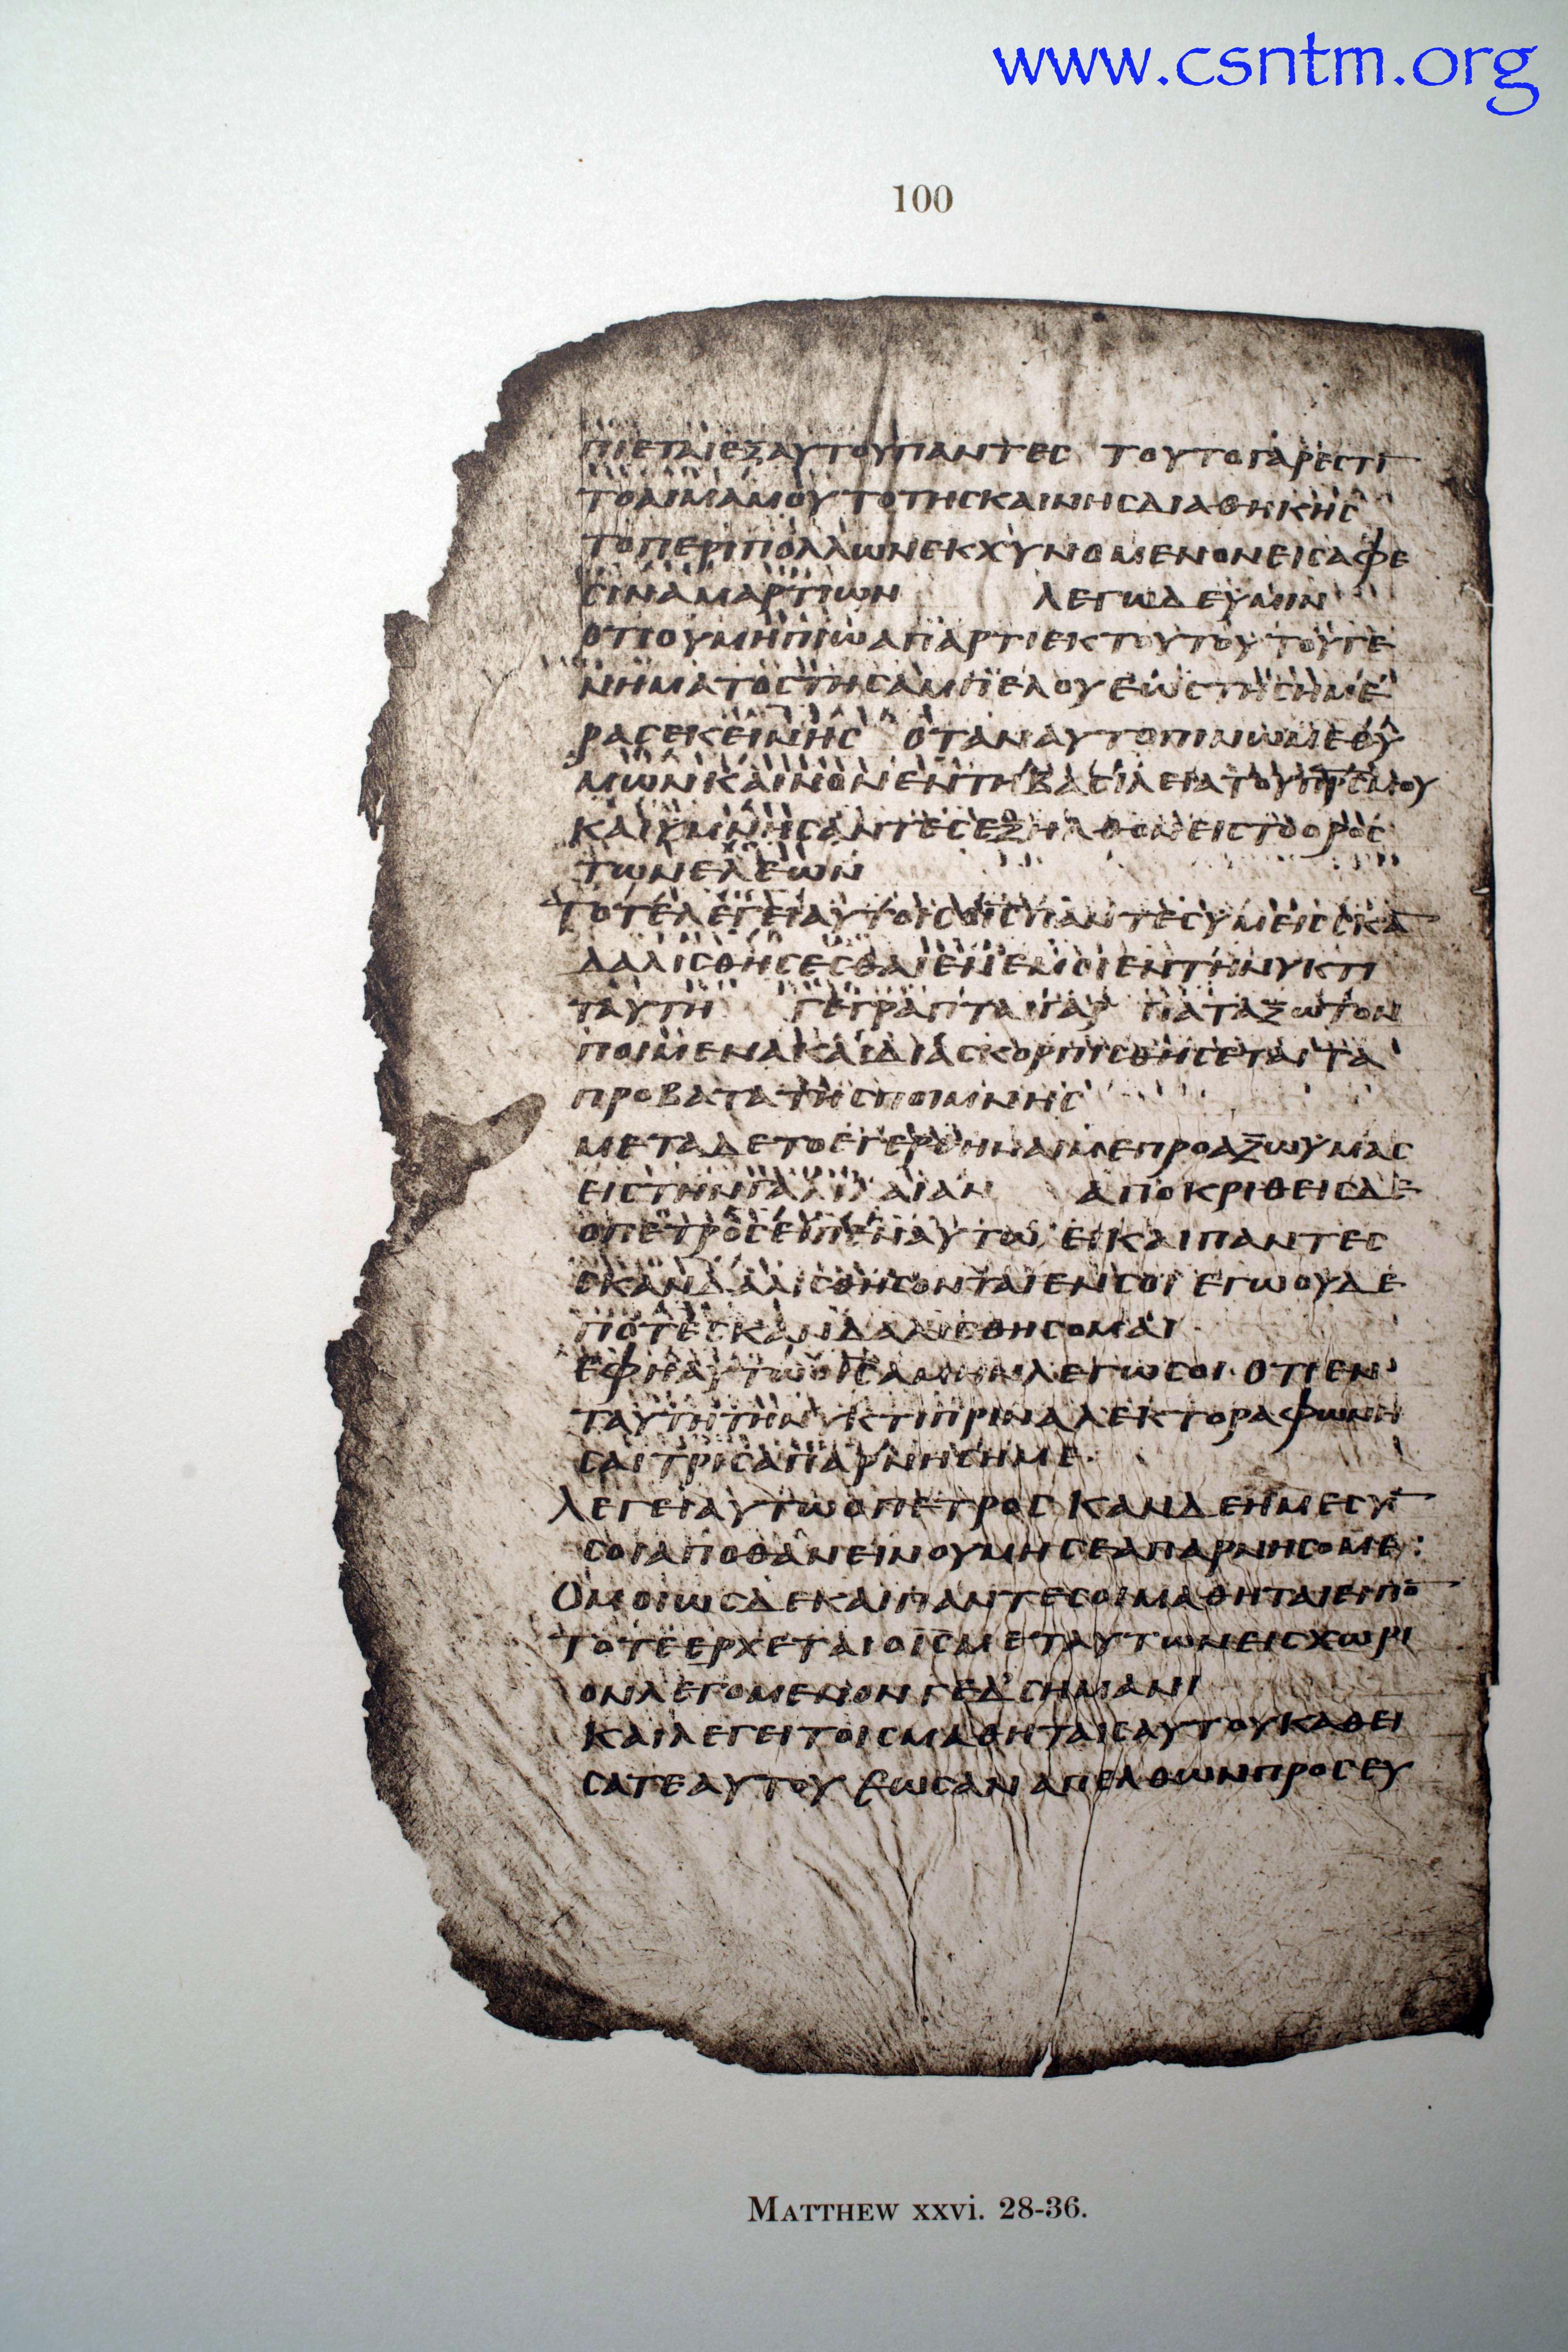 www.csntm.org
100
ΠΙΕΤΑΙΕΞΑΥΤΟΥΠΑΝΤΕC ΤΟΥΤΟΓΑΡΕCΤΙ̅
ΤΟΑΙΜΑΜΟΥΤΟΤΗCΚΑΙΝΗCΔΙΑΘΗΚΗC
ΤΟΠΕΡΙΠΟΛΛΩΝΕΚΧΥΝΟΜΕΝΟΝΕΙCΑΦΕ
CΙΝΑΜΑΡΤΙΩΝ ΛΕΓΩΔΕΥΜΙΝ
ΟΤΙΟΥΜΗΠΙΩΑΠΑΡΤΙΕΚΤΟΥΤΟΥΤΟΥΓΕ
ΝΗΜΑΤΟCΤΗCΑΜΠΕΛΟΥΕΩCΤΗCΗΜΕ
ΡΑCΕΚΕΙΝΗC ΟΤΑΝΑΥΤΟΠΙΝΩΜΕΘΥ
ΜΩΝΚΑΙΝΟΝΕΝΤΗΒΑCΙΛΕΙΑΤΟΥΠ̅Ρ̅C̅ΜΟΥ
ΚΑΙΥΜΝΗCΑΝΤΕCΕΞΗΛΘΟΝΕΙCΤΟΟΡΟC
ΤΩΝΕΛΕΩΝ
ΤΟΤΕΛΕΓΕΙΑΥΤΟΙCΟΙ̅C̅ΠΑΝΤΕCΥΜΕΙCCΚΑ̅
ΔΑΛΙCΘΗCΕCΘΑΙΕΝΕΜΟΙΕΝΤΗΝΥΚΤΙ
ΤΑΥΤΗ ΓΕΓΡΑΠΤΑΙΓΑΡ ΠΑΤΑΞΩΤΟΝ
ΠΟΙΜΕΝΑΚΑΙΔΙΑCΚΟΡΠΙCΘΗCΕΤΑΙΤΑ
ΠΡΟΒΑΤΑΤΗCΠΟΙΜΝΗC
ΜΕΤΑΔΕΤΟΕΓΕΡΘΗΝΑΙΜΕΠΡΟΑΞΩΥΜΑC
ΕΙCΤΗΝΓΑΛΙΛΑΙΑΝ ΑΠΟΚΡΙΘΕΙCΔΕ
ΟΠΕΤΡΟCΕΙΠΕΝΑΥΤΩ ΕΙΚΑΙΠΑΝΤΕC
CΚΑΝΔΑΛΙCΘΗCΟΝΤΑΙΕΝCΟΙ ΕΓΩΟΥΔΕ
ΠΟΤΕCΚΑΝΔΑΛΙCΘΗCΟΜΑΙ
ΕΦΗΑΥΤΩΟΙ̅C̅ΑΜΗΝΛΕΓΩCΟΙ·ΟΤΙΕΝ
ΤΑΥΤΗΤΗΝΥΚΤΙΠΡΙΝΑΛΕΚΤΟΡΑΦΩΝΗ
CΑΙΤΡΙCΑΠΑΡΝΗCΗΜΕ·
ΛΕΓΕΙΑΥΤΩΟΠΕΤΡΟC ΚΑΝΔΕΗΜΕCΥ̅
CΟΙΑΠΟΘΑΝΕΙΝΟΥΜΗCΕΑΠΑΡΝΗCΟΜΕ:
ΟΜΟΙΩCΔΕΚΑΙΠΑΝΤΕCΟΙΜΑΘΗΤΑΙΕΙΠΟ̅
ΤΟΤΕΕΡΧΕΤΑΙΟΙ̅C̅ΜΕΤΑΥΤΩΝΕΙCΧΩΡΙ
ΟΝΛΕΓΟΜΕΝΟΝΓΕΔCΗΜΑΝΙ
ΚΑΙΛΕΓΕΙΤΟΙCΜΑΘΗΤΑΙCΑΥΤΟΥΚΑΘΕΙ
CΑΤΕΑΥΤΟΥ ΕΩCΑΝΑΠΕΛΘΩΝΠΡΟCΕΥ
MATTHEW xxvi. 28-36.